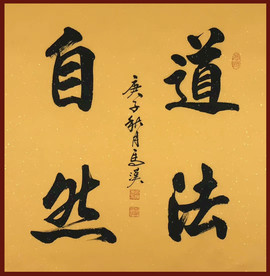 道法
自然
庚子秋月马汉